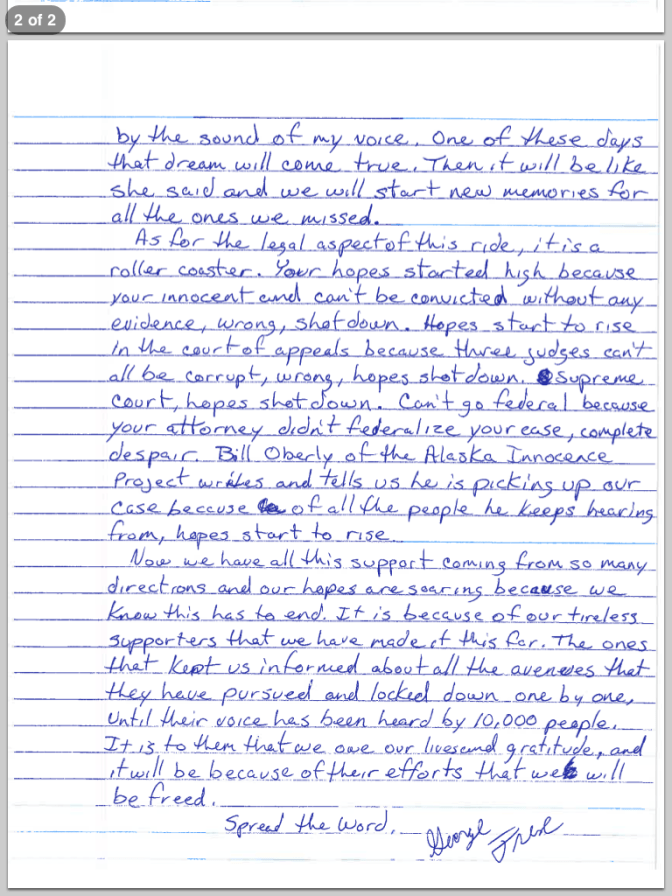 2 of 2
by the sound of my voice. One of these days
that dream will come true. Then it will be like
she said and we will start new memories for
all the ones we missed.
As for the legal aspect of this ride, it is a
roller coaster. Your hopes started high because
your innocent and can't be convicted without any
evidence, wrong, shot down. Hopes start to rise
in the court of appeals because three judges can't
all be corrupt, wrong, hopes shot down. Supreme
court, hopes shot down. Can't go federal because
your attorney didn't federalize your case, complete
despair. Bill Oberly of the Alaska Innocence
Project writes and tells us he is picking up our
case because of all the people he keeps hearing
from, hopes start to rise.
Now we have all this support coming from so many
directions and our hopes are soaring because we
know this has to end. It is because of our tireless
supporters that we have made it this far. The ones
that kept us informed about all the aveneues that
they have pursued and locked down one by one,
until their voice has been heard by 10,000 people.
It is to them that we owe our lives and gratitude, and
it will be because of their efforts that we will
be freed.
Spread the word. George Frese